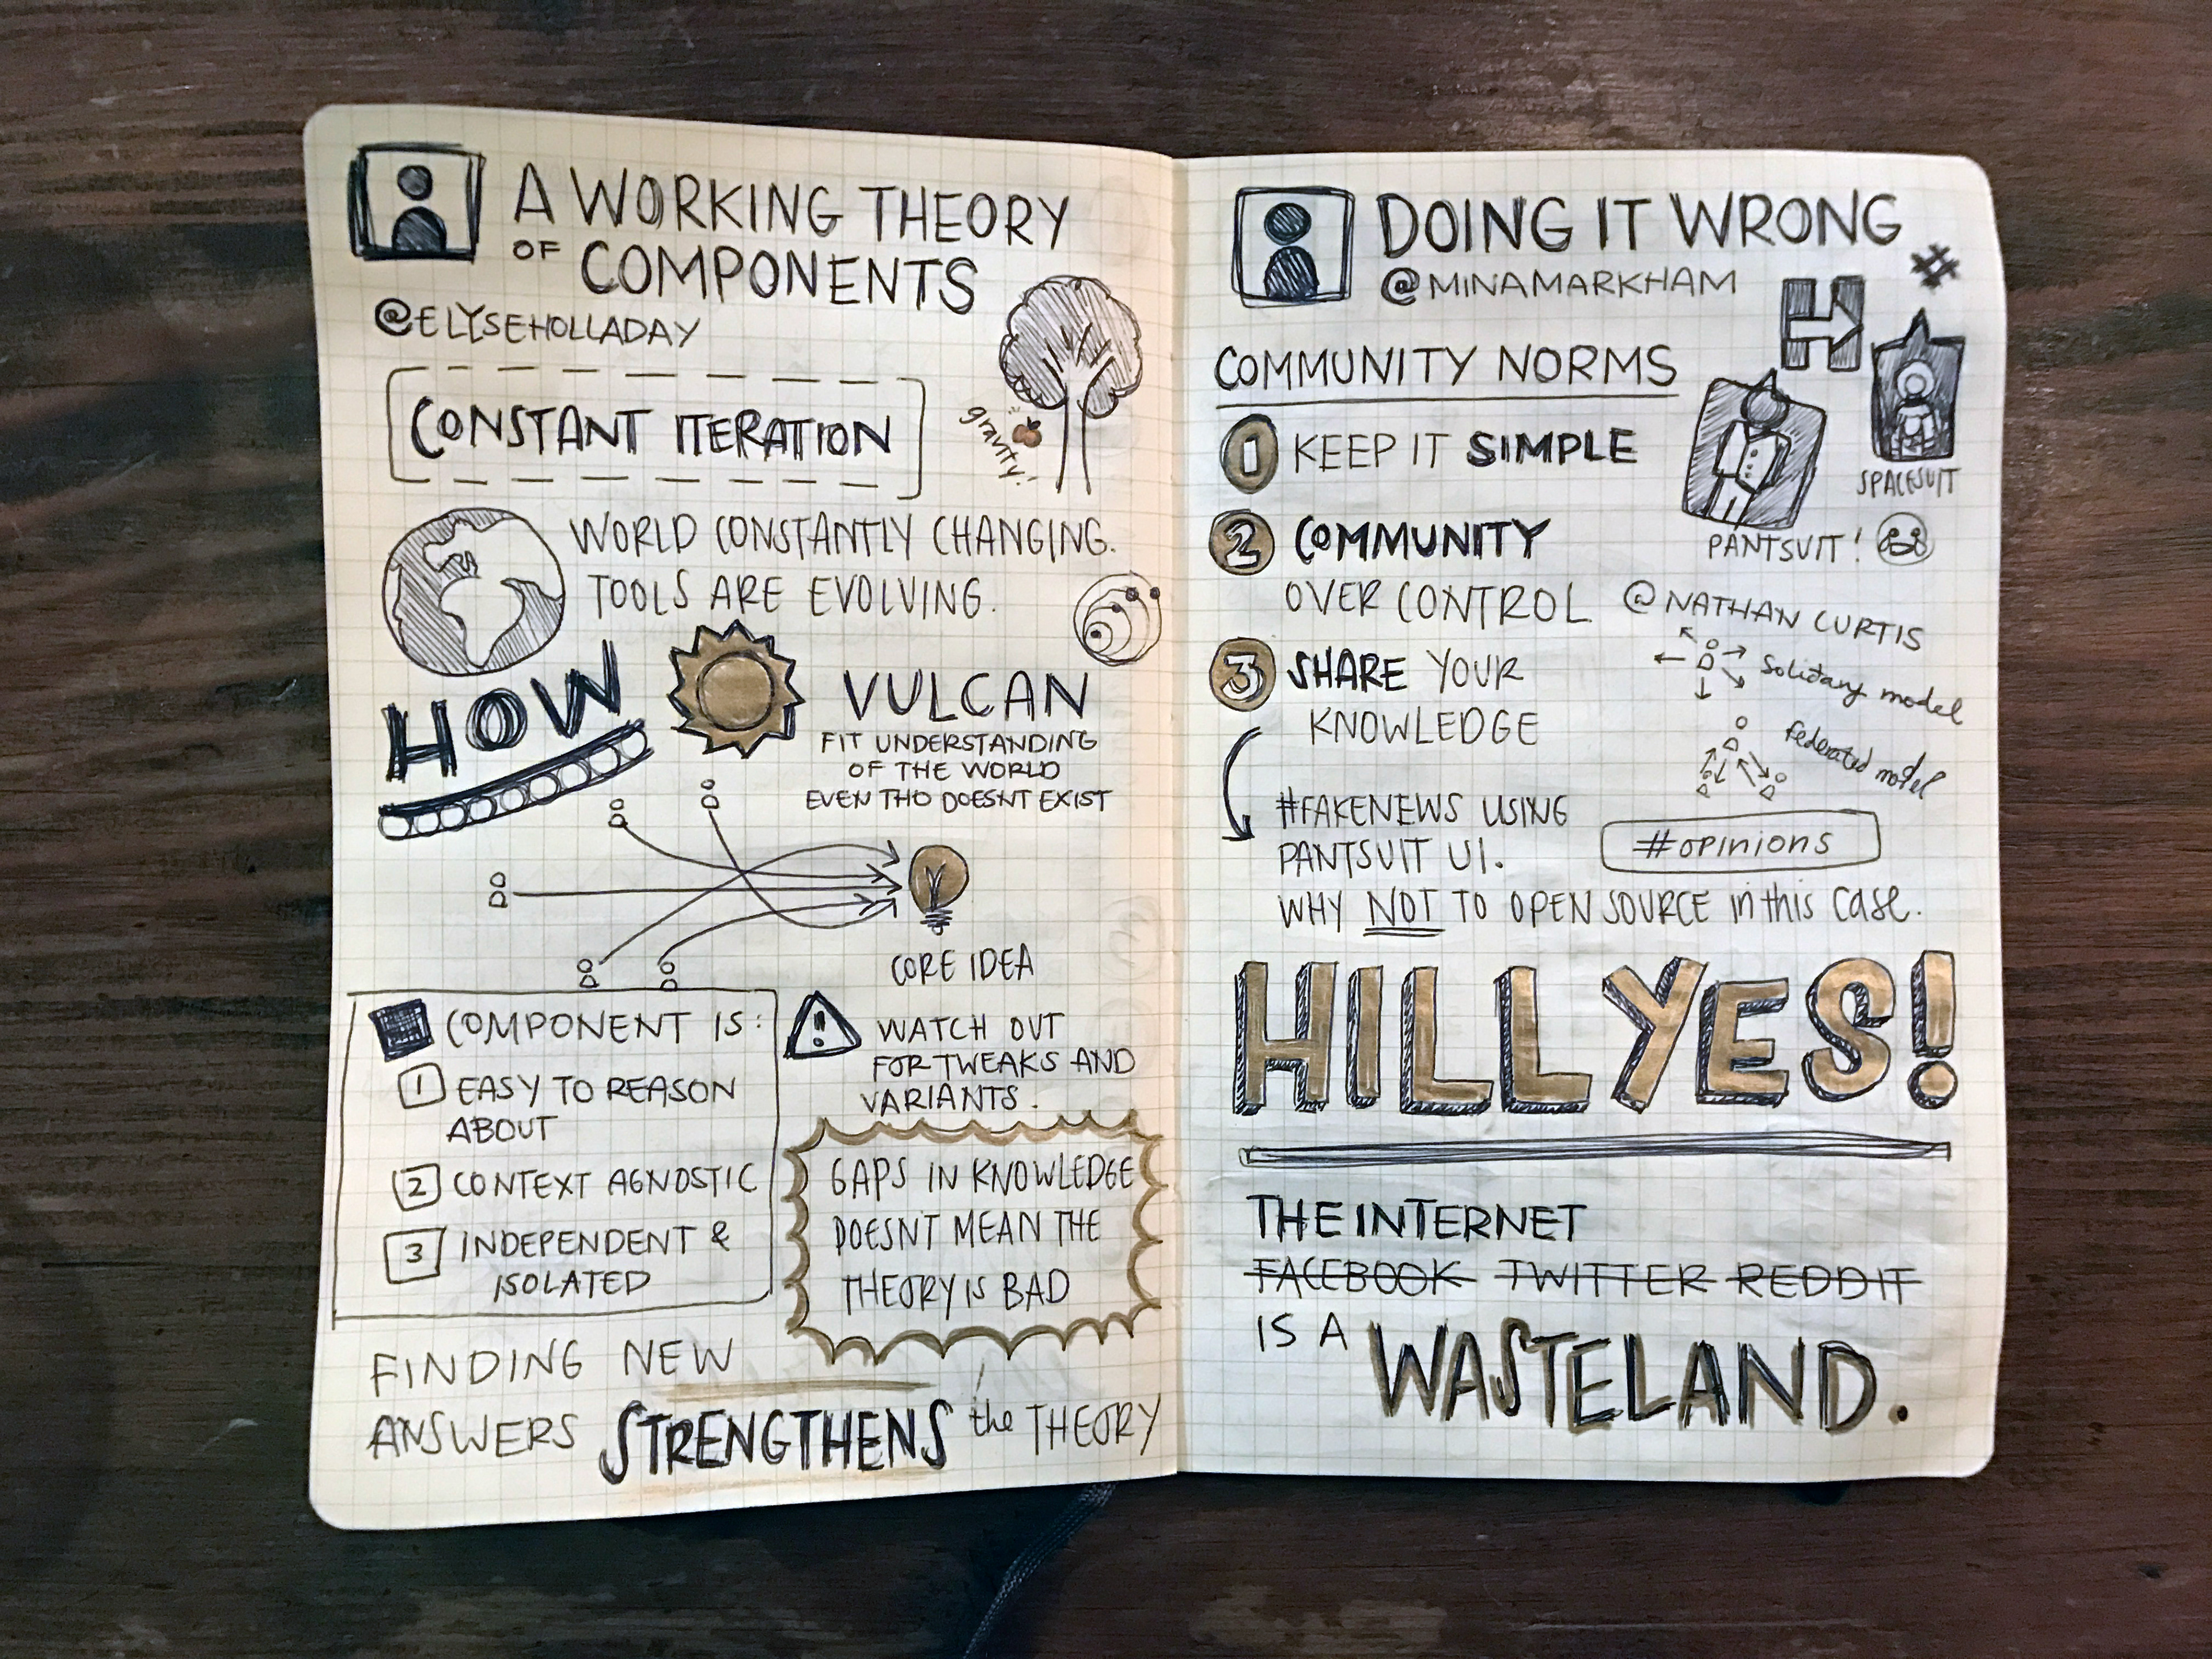 A WORKING THEORY
OF COMPONENTS
@ELYSEHOLLADAY
CONSTANT ITERATION
gravity!
WORLD CONSTANTLY CHANGING.
TOOLS ARE EVOLVING.
HOW
VULCAN
FIT UNDERSTANDING
OF THE WORLD
EVEN THO DOESNT EXIST
CORE IDEA
COMPONENT IS:
1 EASY TO REASON
ABOUT
2 CONTEXT AGNOSTIC
3 INDEPENDENT &
ISOLATED
! WATCH OUT
FOR TWEAKS AND
VARIANTS.
GAPS IN KNOWLEDGE
DOESNT MEAN THE
THEORY IS BAD
FINDING NEW
ANSWERS STRENGTHENS the THEORY
DOING IT WRONG
@MINAMARKHAM
#
H
COMMUNITY NORMS
1 KEEP IT SIMPLE
SPACESUIT
PANTSUIT!
2 COMMUNITY
OVER CONTROL
@NATHAN CURTIS
solitary model
federated model
3 SHARE YOUR
KNOWLEDGE
#FAKENEWS USING
PANTSUIT UI.
#opinions
WHY NOT TO OPEN SOURCE in this case.
HILLYES!
THE INTERNET
FACEBOOK TWITTER REDDIT
IS A WASTELAND.